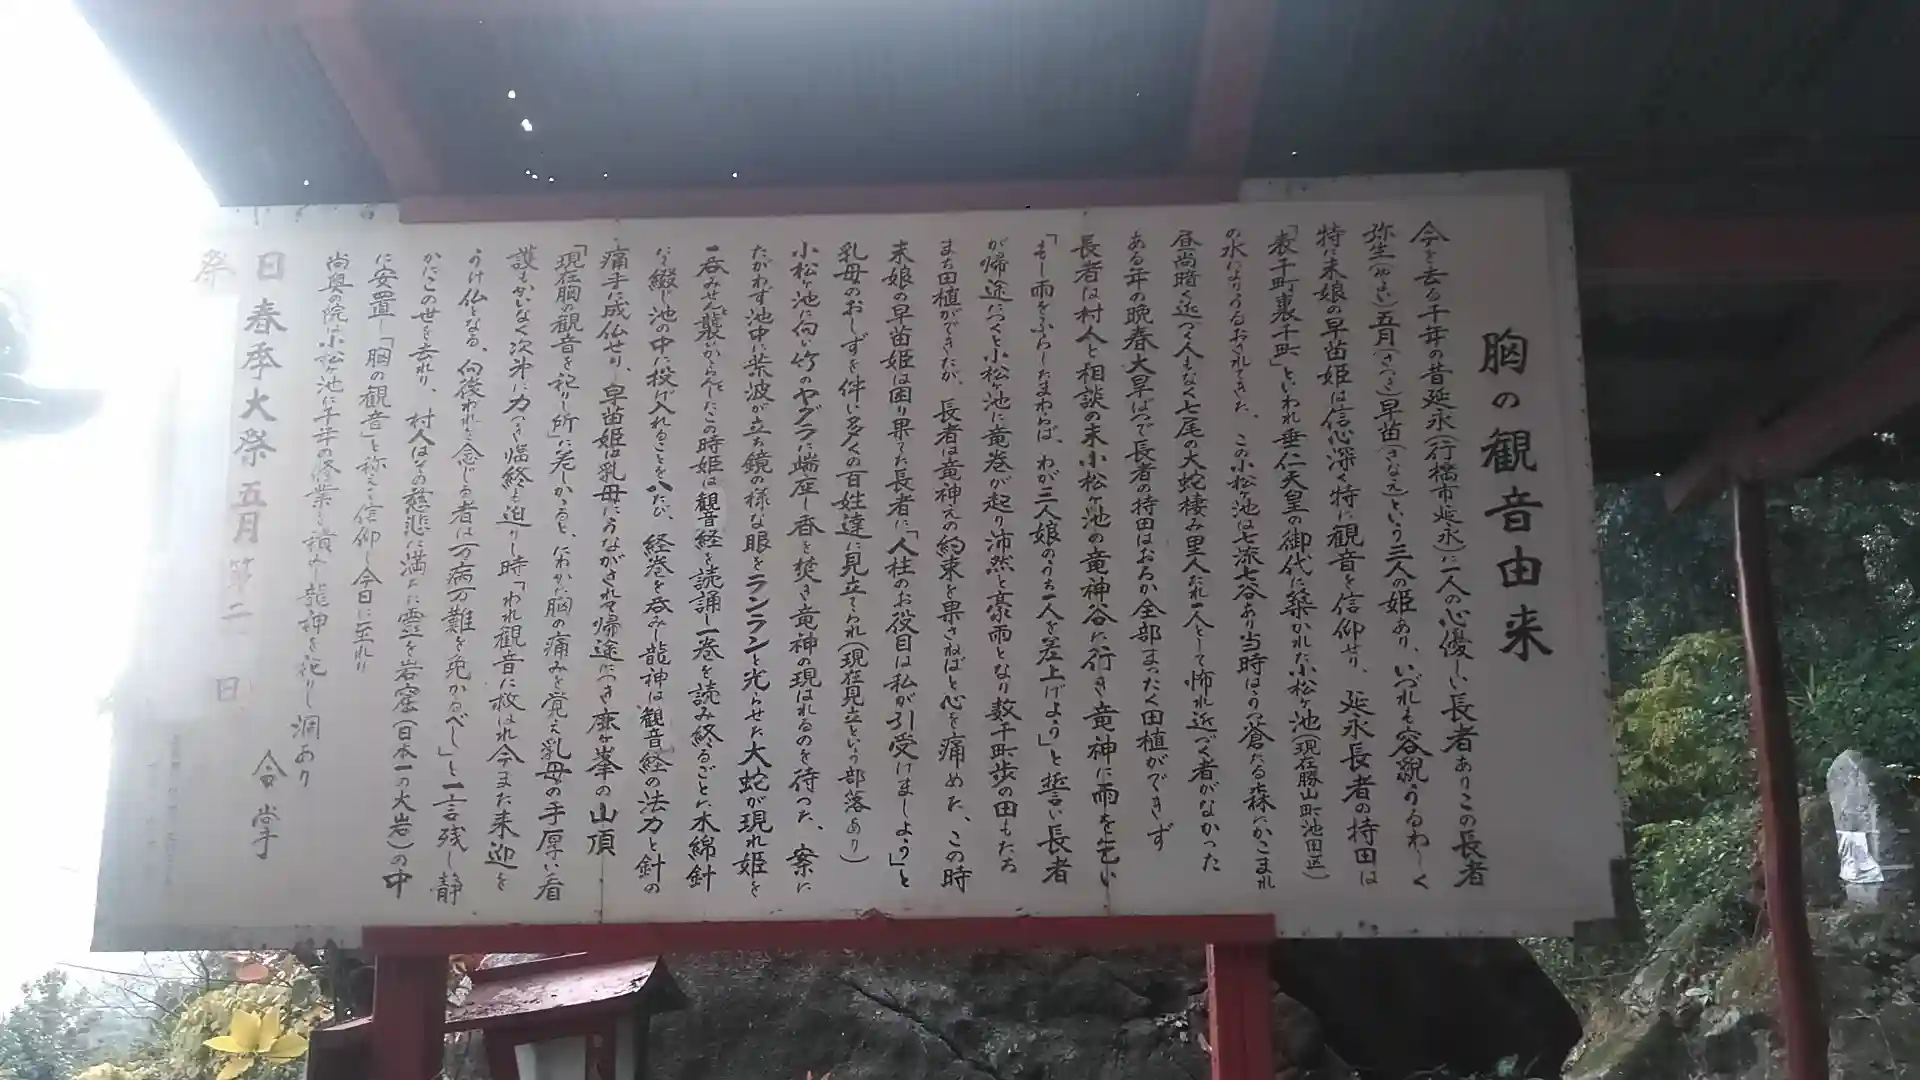 胸の観音由来
今を去る千年の昔延永(行橋市延永)に一人の心優しい長者ありこの長者
弥生(やよい)五月(さつき)早苗(さなえ)という三人の姫あり、いづれも容貌うるわしく
特に末娘の早苗姫は信心深く特に観音を信仰せり、延永長者の持田は
「表千町裏千町」といわれ垂仁天皇の御代に築かれた小松ヶ池(現在勝山町池田区)
の水によりうるおされてきた、この小松ヶ池は七流七谷あり当時はうっ蒼たる森にかこまれ
昼尚暗く近づく人もなく七尾の大蛇棲み里人だれ一人として怖れ近づく者がなかった
ある年の晩春大旱ばつで長者の持田はおろか全部まったく田植ができず
長者は村人と相談の末小松ヶ池の竜神谷に行き竜神に雨を乞い
「もし雨をふらしたまわらば、わが三人娘のうち一人を差上げよう」と誓い長者
が帰途につくと小松ヶ池に竜巻が起り沛然と豪雨となり数千町歩の田もたち
まち田植ができたが、長者は竜神えの約束を果さねばと心を痛めた、この時
末娘の早苗姫は困り果てた長者に「人柱のお役目は私が引受けましよう」と
乳母のおしずを伴い多くの百姓達に見立てられ(現在見立という部落あり)
小松ヶ池に向い竹のヤグラに端座し香を焚き竜神の現はれるのを待った、案に
たがわず池中に紫波が立ち鏡の様な眼をランランと光らせた大蛇が現れ姫を
一呑みせんと襲いかからんとしたこの時姫は観音経を読誦し一巻を読み終るごとに木綿針
にて綴じ池の中に投げ入れることを八たび、経巻を呑みし龍神は観音経の法力と針の
痛手に成仏せり、早苗姫は乳母にうながされて帰途につき鹿ヶ峯の山頂
「現在胸の観音を祀りし所」に差しかゝると、にわかに胸の痛みを覚え乳母の手厚い看
護もかいなく次第に力つく臨終も迫りし時「われ観音に救はれ今また来迎を
うけ仏となる、向後われを念じる者は万病万難を免かるべし」と一言残し静
かにこの世を去れり、村人はその慈悲に満ちた霊を岩窟(日本一の大岩)の中
に安置し「胸の観音」と称えて信仰し今日に至れり
尚奥の院は小松ヶ池に千年の修業を積み龍神を祀りし洞あり
合掌
日 春季大祭 五月第二 日
祭